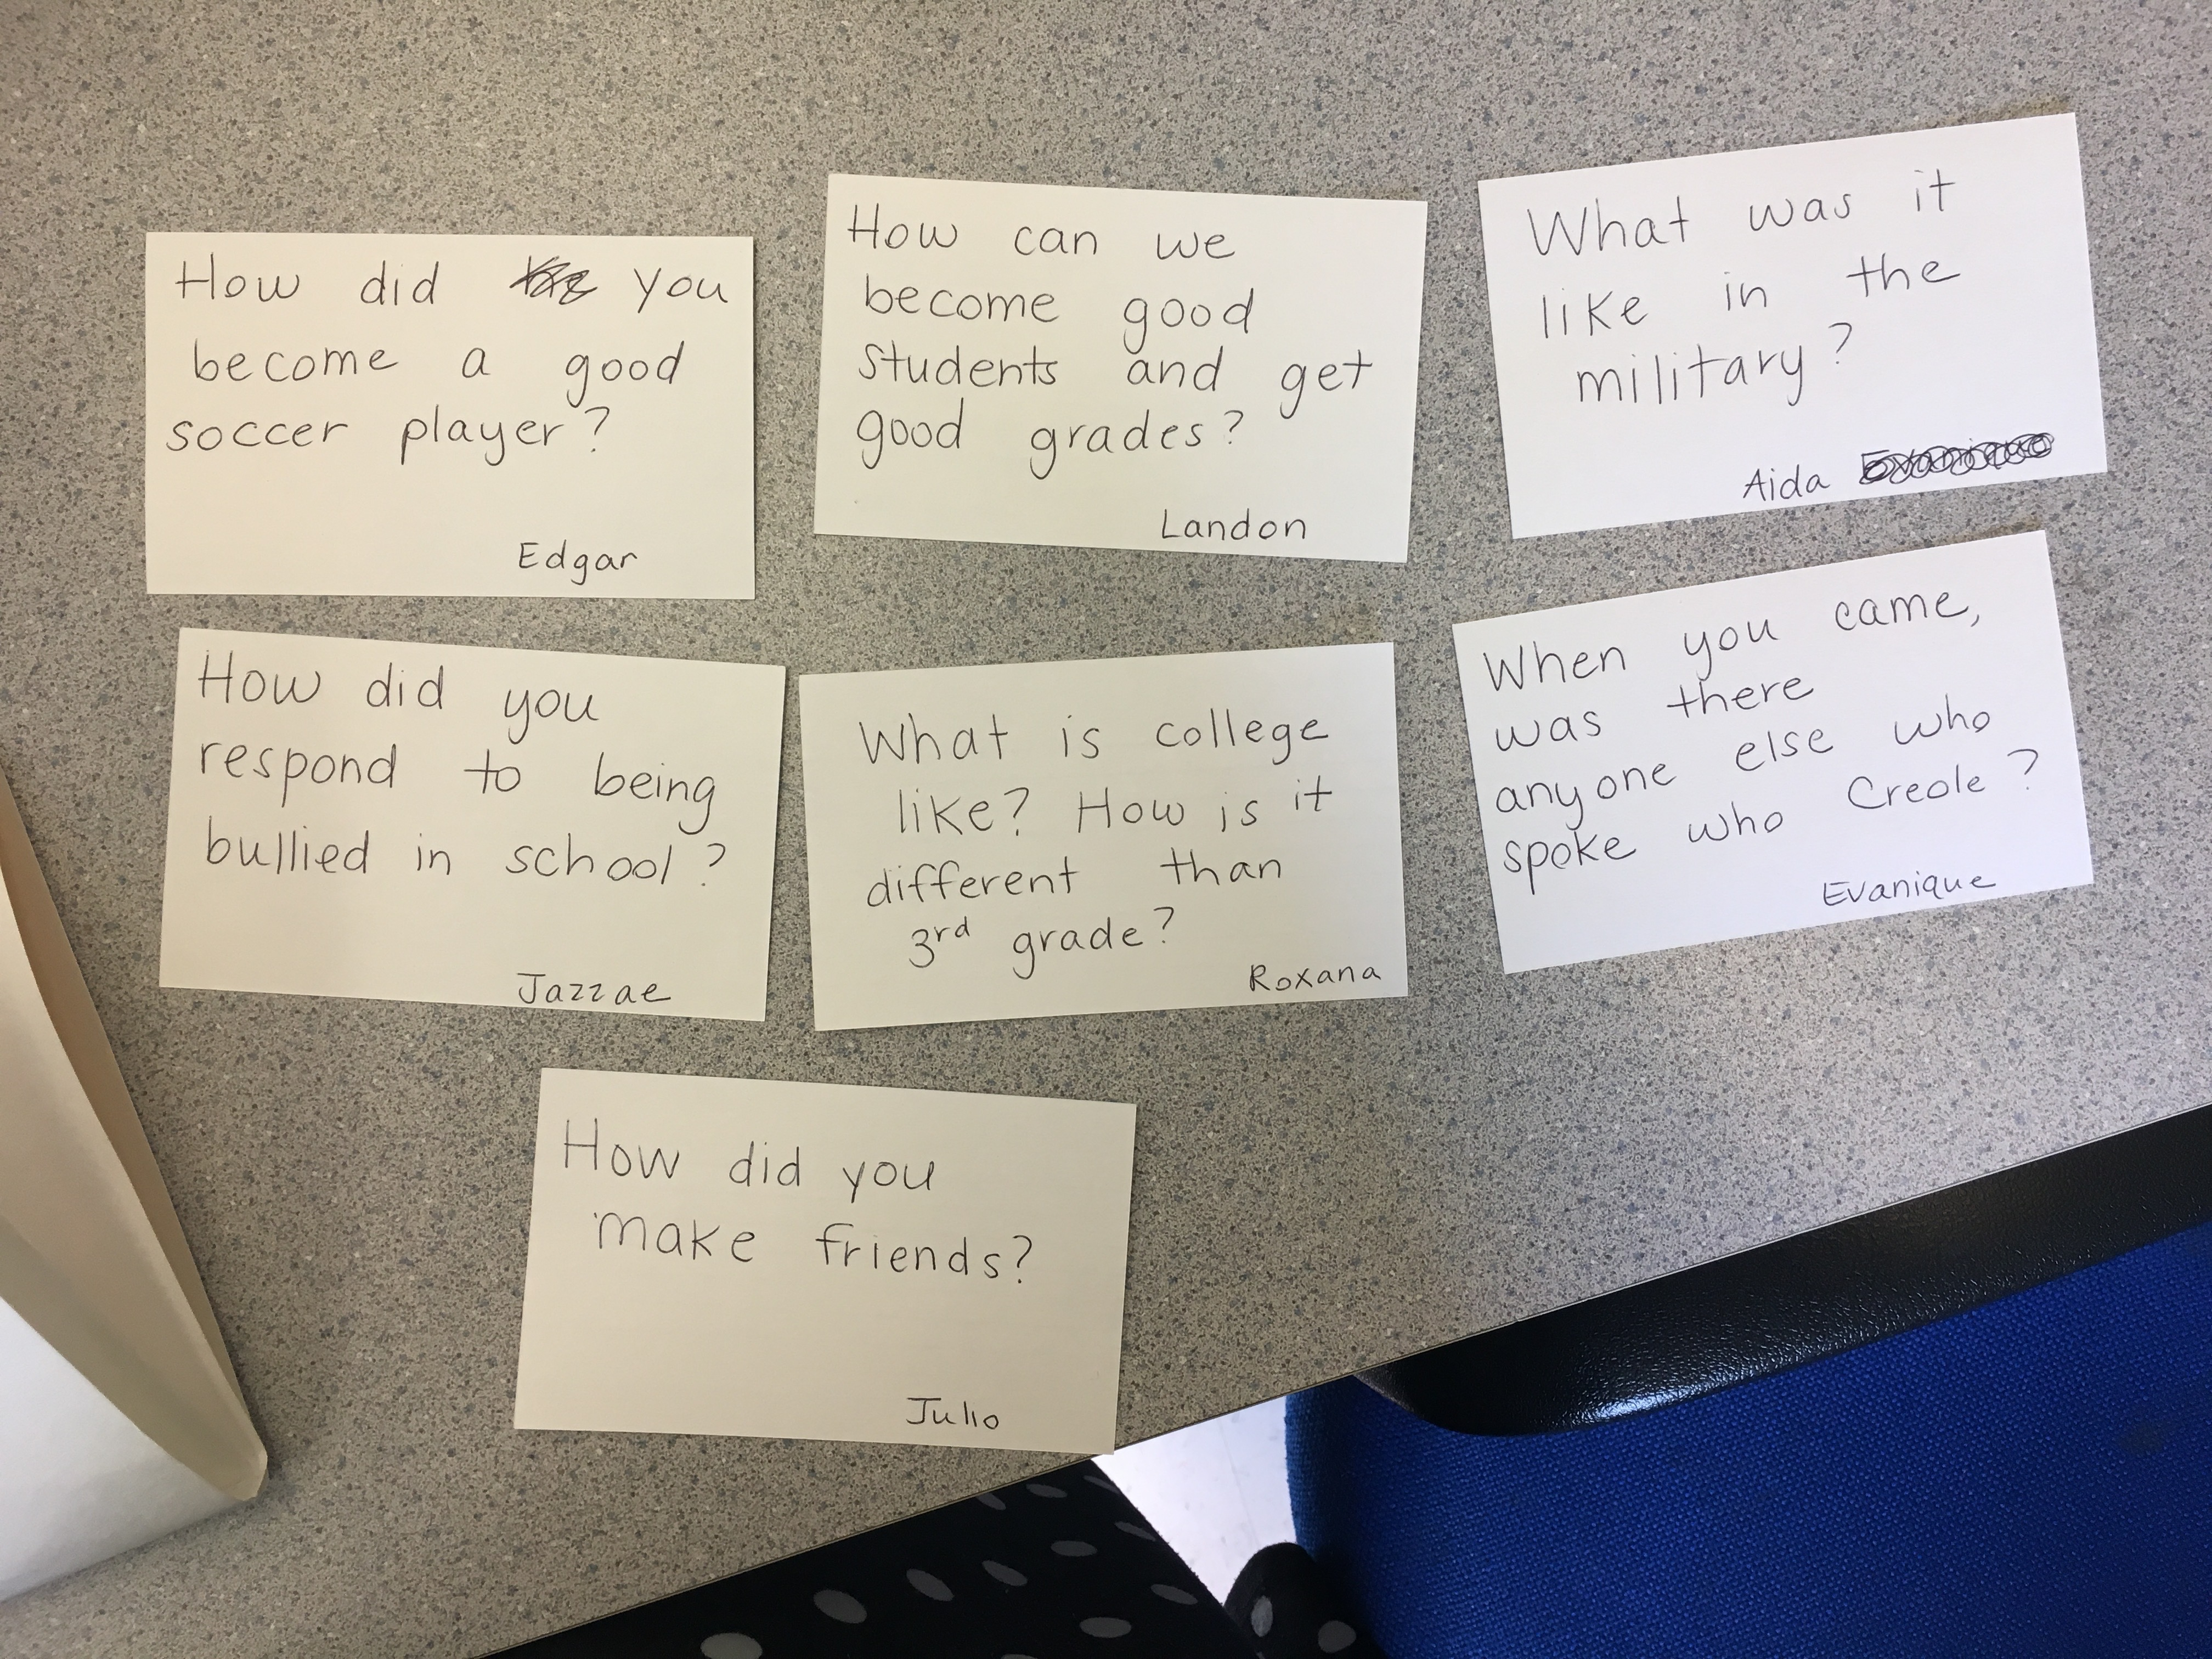 How did you
become a good
soccer player?
Edgar
How can we
become good
students and get
good grades?
Landon
What was it
like in the
military?
Aida Evanique
How did you
respond to being
bullied in school?
Jazzae
What is college
like? How is it
different than
3rd grade?
Roxana
When you came,
was there
anyone else who
spoke who Creole?
Evanique
How did you
make friends?
Julio